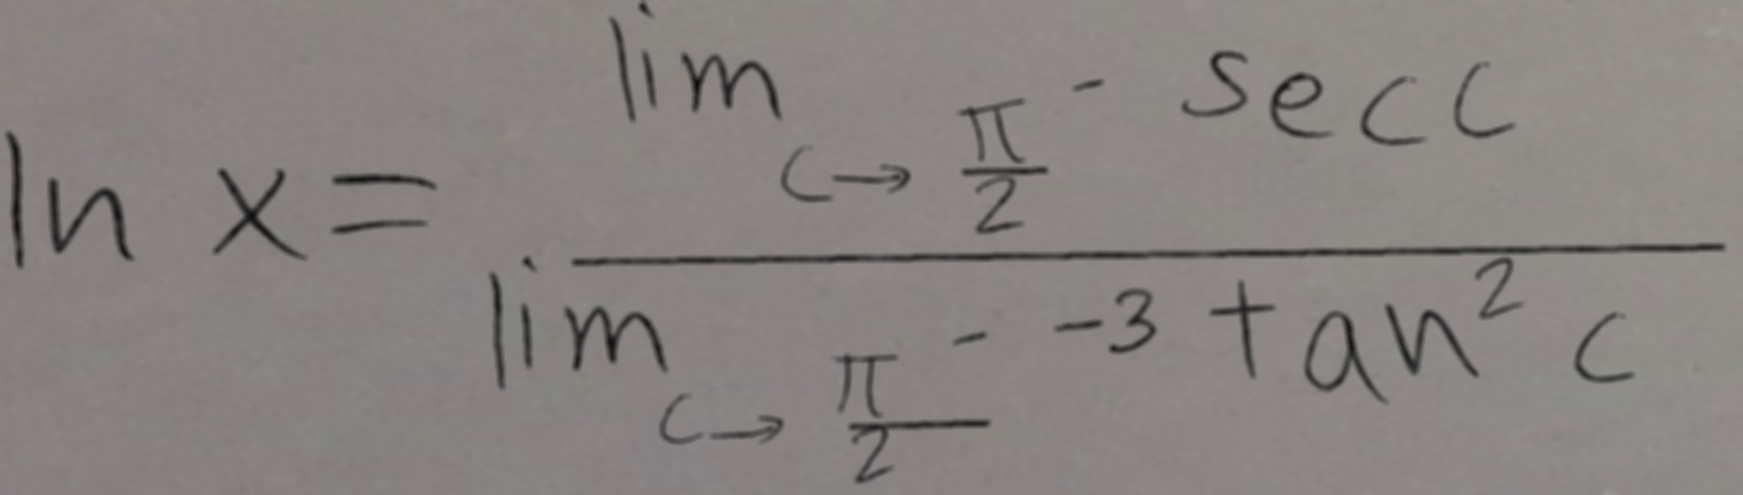 ln x = \frac{\lim_{c \to \frac{\pi}{2}^-} \sec c}{\lim_{c \to \frac{\pi}{2}^-} -3 \tan^2 c}